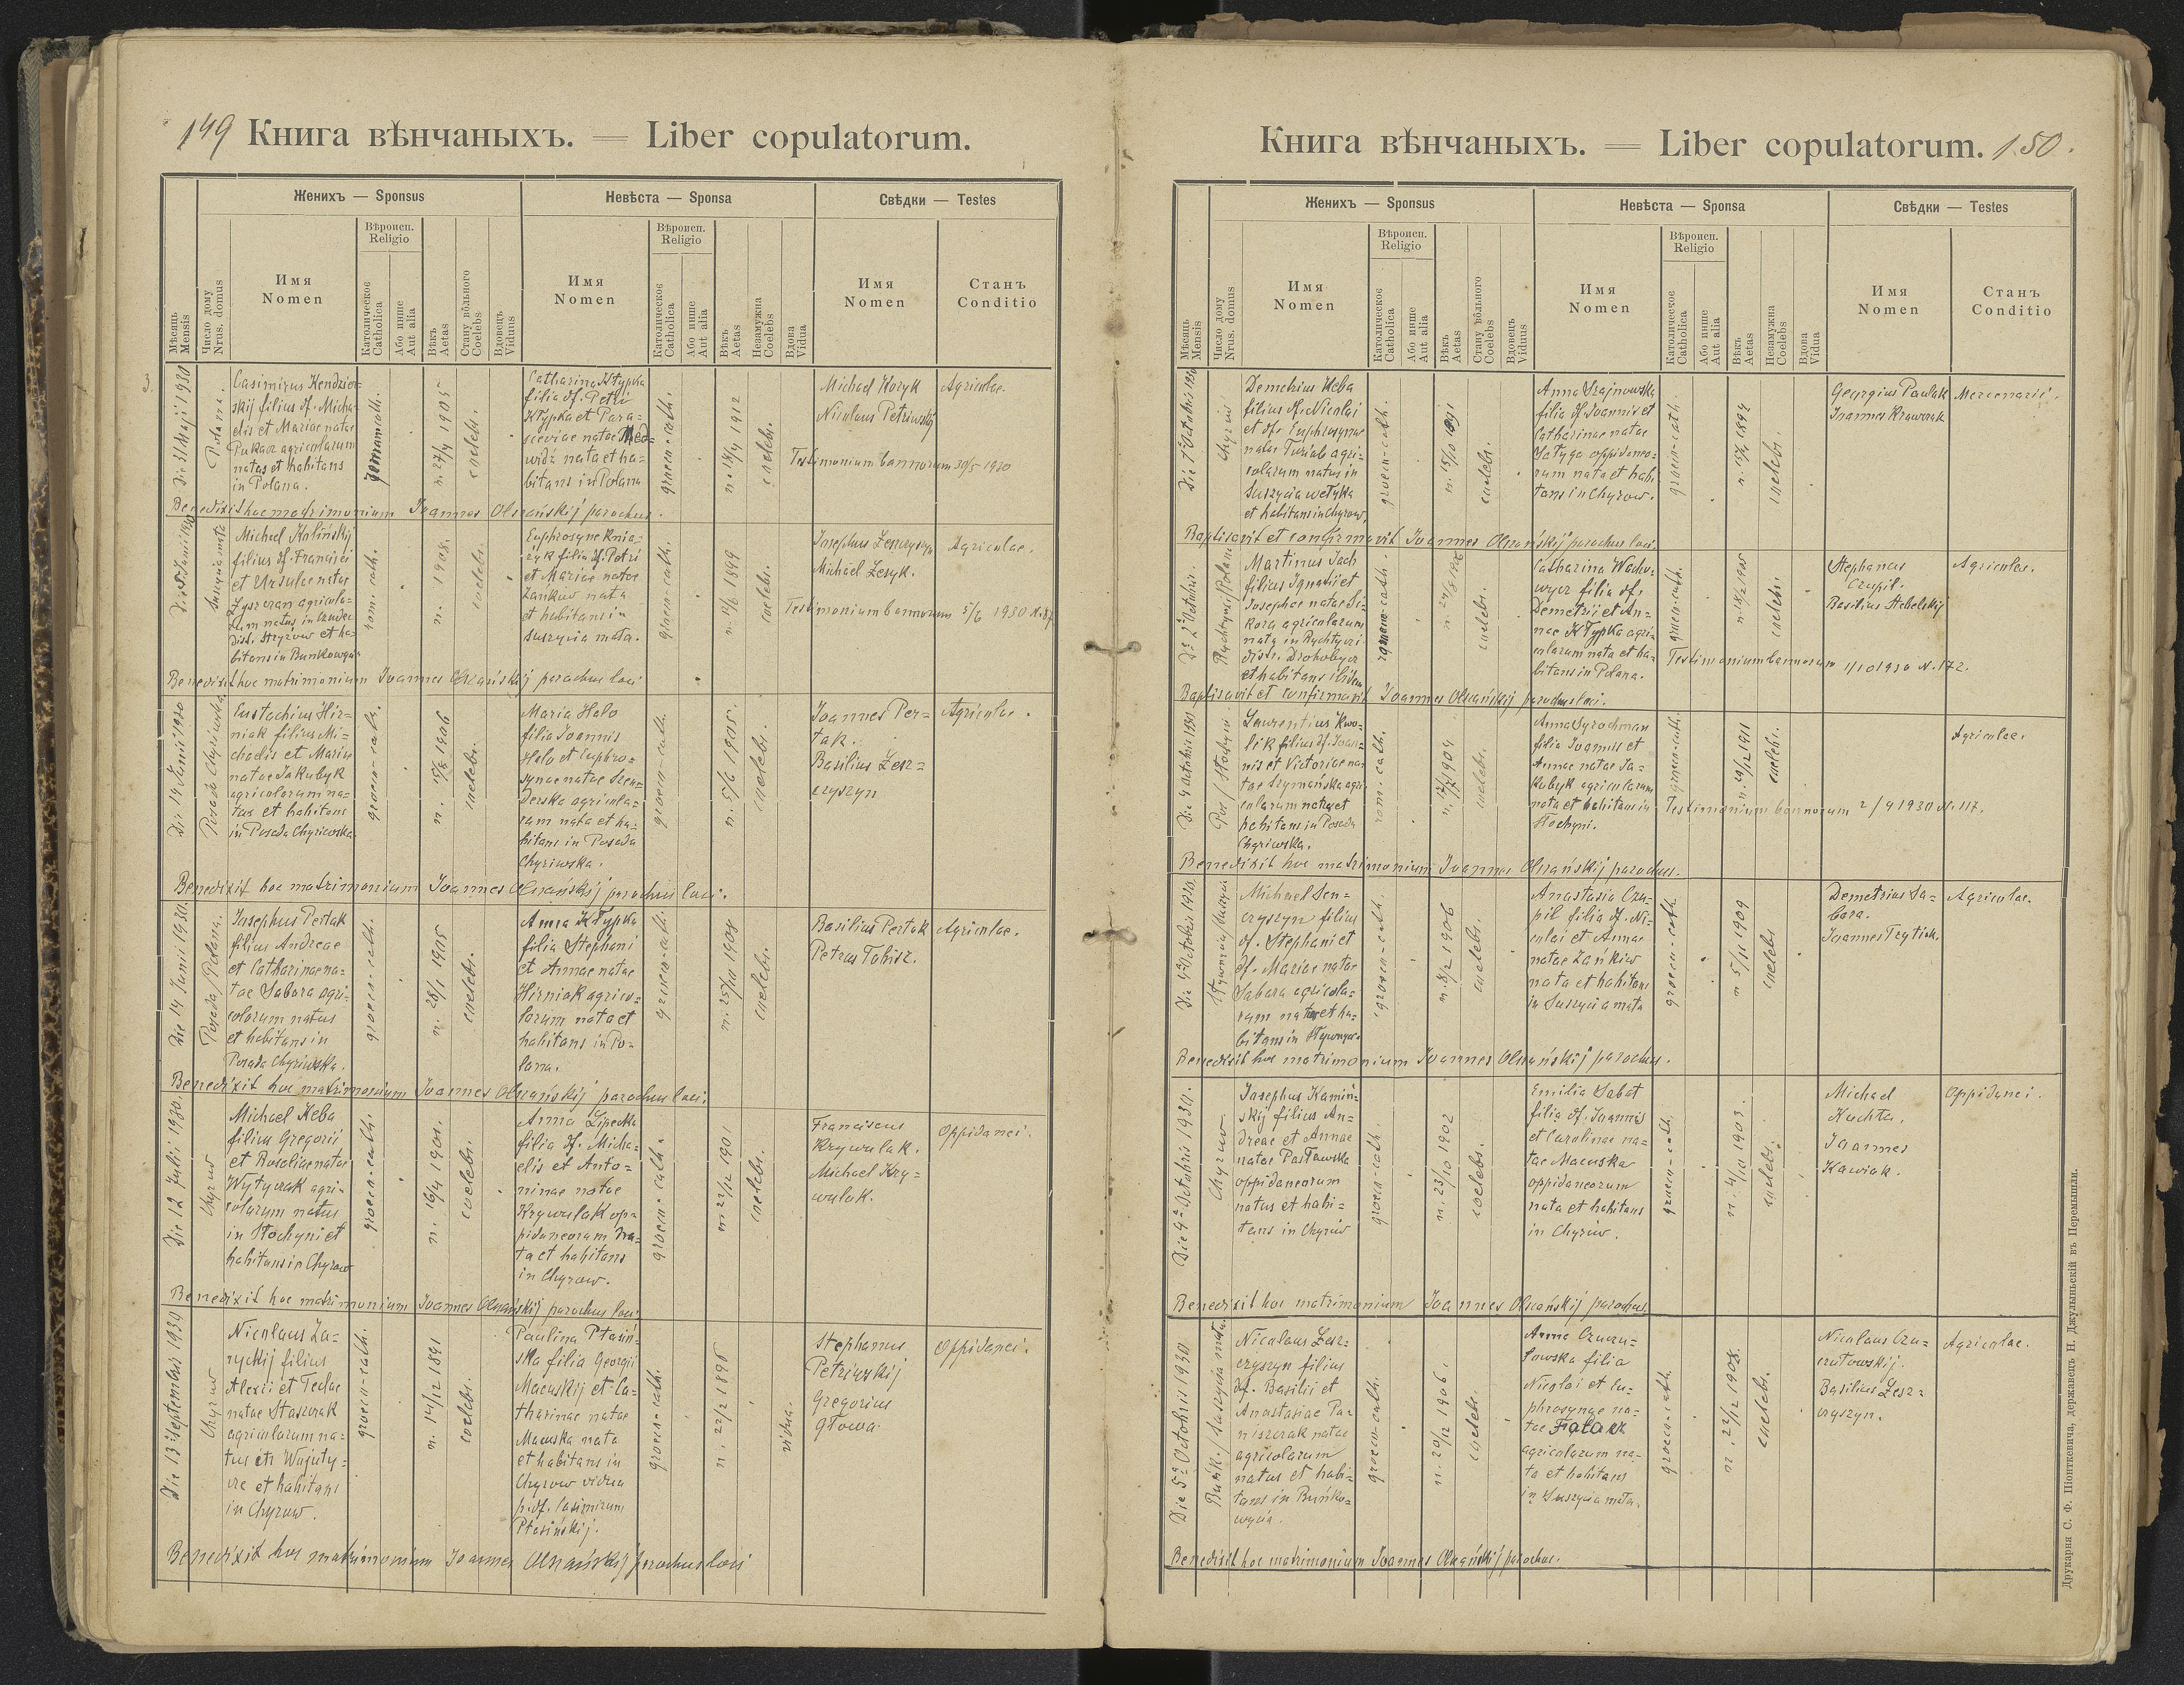 149 Книга вѣнчаныхъ. — Liber copulatorum.
Женихъ — Sponsus
Невѣста — Sponsa
Свѣдки — Testes
Мѣсяць Mensis
Число дому Nrus. domus
Имя Nomen
Вѣроисп. Religio
Католическое Catholica
Або инше Aut alia
Вѣкъ Aetas
Стану вôльного Coelebs
Вдовець Viduus
Имя Nomen
Вѣроисп. Religio
Католическое Catholica
Або инше Aut alia
Вѣкъ Aetas
Незамужна Coelebs
Вдова Vidua
Имя Nomen
Станъ Conditio
Die 31 Maii 1930
Polana.
Casimirus Kendzier-
skij filius df. Micha-
elis et Mariae natae
agricolarum
natus et habitans
in Polana.
n. 27/4 1905
coelebs.
Catharina Kłypka
filia df. Petri
Kłypka et Para-
sceviae natae Med-
widź nata et ha-
bitans in Polana
graeco-cath.
n. 18/4 1912
coelebs.
Michael Koryk
Nicolaus Petriwskij
Agricolae.
Testimonium bannorum 30/5 1930
Benedixit hoc matrimonium Joannes Olszańskij parochus.
Suszycia mała
Michael Kaliński
filius df. Francisci
et Ursulae natae
agricola-
rum natus in
distr. Stryżow et ha-
bitans in Bunkowycia
rom. cath.
n. 1908.
coelebs.
Euphrosyne Knia-
zyk filia df. Petri
et Mariae natae
Zańkiw nata
et habitans in
Suszycia mała.
graeco-cath.
1899
coelebs.
Josephus Leszczyszyn
Michael Lesyk.
Agricolae.
Testimonium bannorum 5/6 1930 N. 87
Benedixit hoc matrimonium Joannes Olszańskij parochus loci
Die 14 Junii 1930
Posada Chyriwska
Eustachius Hir-
niak filius Mi-
chaelis et Mariae
natae Jakubyk
agricolarum na-
tus et habitans
in Posada Chyriwska
graeco-cath.
1906
coelebs.
Maria Halo
filia Joannis
Halo et Euphro-
synae natae Szen-
derska agricola-
rum nata et ha-
bitans in Posada
Chyriwska.
graeco-cath.
n. 5/6 1905.
coelebs.
Joannes Per-
tak.
Basilius Lesz-
czyszyn
Agricolae.
Benedixit hoc matrimonium Joannes Olszańskij parochus loci.
Die 14 Junii 1930.
Posada/Polana.
Josephus Pertak
filius Andreae
et Catharinae na-
tae Sabara agri-
colarum natus
et habitans in
Posada Chyriwska.
graeco-cath.
n. 28/1 1905
coelebs.
Anna Kłypka
filia Stephani
et Annae natae
Hirniak agrico-
larum nata et
habitans in Po-
lana.
graeco-cath.
n. 25/11 1908
coelebs.
Basilius Pertak
Petrus Tobisz.
Agricolae.
Benedixit hoc matrimonium Joannes Olszańskij parochus loci.
Die 12 Julii 1930.
Chyrow
Michael Keba
filius Gregorii
et Rosaliae natae
Wytyczak agri-
colarum natus
in Słochyni et
habitans in Chyrow
graeco-cath.
n. 16/4 1901.
coelebs.
Anna Lipecka
filia df. Micha-
elis et Anto-
ninae natae
Krywulak op-
pidaneorum na-
ta et habitans
in Chyrow.
graeco-cath.
n. 22/12 1901
coelebs.
Franciscus
Krywulak.
Michael Kry-
wulak.
Oppidanei.
Benedixit hoc matrimonium Joannes Olszańskij parochus loci
Die 13 Septembris 1930
Chyrow
Nicolaus Za-
ryckij filius
Alexii et Teclae
natae Staszczak
agricolarum na-
tus in Wojuty-
cze et habitans
in Chyrow.
graeco-cath.
n. 14/12 1891
coelebs.
Paulina Ptasiń-
ska filia Georgii
Macuskij et Ca-
tharinae natae
Macuska nata
et habitans in
Chyrow vidua
p. df. Casimirum
Ptasińskij.
graeco-cath.
n. 22/2 1898
vidua.
Stephanus
Petriwskij
Gregorius
Głowa.
Oppidanei.
Benedixit hoc matrimonium Joannes Olszańskij parochus loci
Книга вѣнчаныхъ. — Liber copulatorum. 150.
Женихъ — Sponsus
Невѣста — Sponsa
Свѣдки — Testes
Мѣсяць Mensis
Число дому Nrus. domus
Имя Nomen
Вѣроисп. Religio
Католическое Catholica
Або инше Aut alia
Вѣкъ Aetas
Стану вôльного Coelebs
Вдовець Viduus
Имя Nomen
Вѣроисп. Religio
Католическое Catholica
Або инше Aut alia
Вѣкъ Aetas
Незамужна Coelebs
Вдова Vidua
Имя Nomen
Станъ Conditio
Chyrow
Demetrius Keba
filius df. Nicolai
et df. Euphrosynae
natae Turżab agri-
colarum natus in
Suszycia wełyka
et habitans in Chyrow.
graeco-cath.
n. 15/10 1891
coelebs.
Anna Szajnowska
filia df. Joannis et
Catharinae natae
Sałyga oppidaneo-
rum nata et habi-
tans in Chyrow.
graeco-cath.
1894
coelebs
Georgius Pawlak
Joannes Krawczak
Mercenarii.
Baptisavit et confirmavit Joannes Olszańskij parochus loci.
Rychtyczi/Polana
Martinus Sach
filius Ignatii et
Josephae natae Si-
kora agricolarum
natus in Rychtyczi
distr. Drohobycz
et habitans ibidem
coelebs.
Catharina Wacho-
wycz filia df.
Demetrii et An-
nae Kłypka agri-
colarum nata et ha-
bitans in Polana.
graeco-cath.
n. 18/2 1905
coelebs.
Stephanus
Czupil.
Basilius Stebelskij
Agricolae.
Testimonium bannorum 1/10 1930 N. 172.
Baptisavit et confirmavit Joannes Olszańskij parochus loci.
Die 4 Octobris 1930
Pos/Słochyni
Laurentius Kwo-
lik filius df. Joan-
nis et Victoriae na-
tae Szymańska agri-
colarum natus et
habitans in Posada
Chyriwska.
rom. cath.
1904
coelebs.
Anna Syrochman
filia Joannis et
Annae natae Ja-
kubyk agricolarum
nata et habitans in
Słochyni.
graeco-cath.
n. 29/12 1911
coelebs.
Agricolae.
Testimonium bannorum 2/9 1930 N. 117.
Benedixit hoc matrimonium Joannes Olszańskij parochus.
Michael Sen-
czyszyn filius
df. Stephani et
df. Mariae natae
Sabara agricola-
rum natus et ha-
bitans in
graeco-cath.
n. 8/2 1906
coelebs.
Anastasia Czu-
pil filia df. Ni-
colai et Annae
natae Zańkiw
nata et habitans
in Suszycia mała
graeco-cath.
n. 5/11 1909
coelebs
Demetrius Sa-
bara.
Joannes Teytiak.
Agricolae.
Benedixit hoc matrimonium Joannes Olszańskij parochus.
Die 4 Octobris 1930.
Chyrow
Josephus Kamiń-
skij filius An-
dreae et Annae
natae Pasławska
oppidaneorum
natus et habi-
tans in Chyriw
graeco-cath.
n. 23/10 1902
coelebs.
Emilia Sabat
filia df. Joannis
et Carolinae na-
tae Macuska
oppidaneorum
nata et habitans
in Chyriw.
graeco-cath.
n. 4/10 1903.
coelebs.
Michael
Kuchta.
Joannes
Kawiak.
Oppidanei.
Benedixit hoc matrimonium Joannes Olszańskij parochus.
Die 5 Octobris 1930
Buńk./Suszycia mała
Nicolaus Lesz-
czyszyn filius
df. Basilii et
Anastasiae Pa-
niszczak natae
agricolarum
natus et habi-
tans in Buńko-
wycia.
graeco-cath.
n. 20/12 1906.
coelebs.
Anna Czuczu-
łowska filia
Nicolai et Eu-
phrosynae na-
tae Fałacz
agricolarum na-
ta et habitans
in Suszycia mała.
graeco-cath.
n. 22/12 1908.
coelebs.
Nicolaus Czu-
czułowskij.
Basilius Lesz-
czyszyn.
Agricolae.
Benedixit hoc matrimonium Joannes Olszańskij parochus.
Друкарня С. Ф. Піонткевича, державець Н. Джулыньскій въ Перемышли.